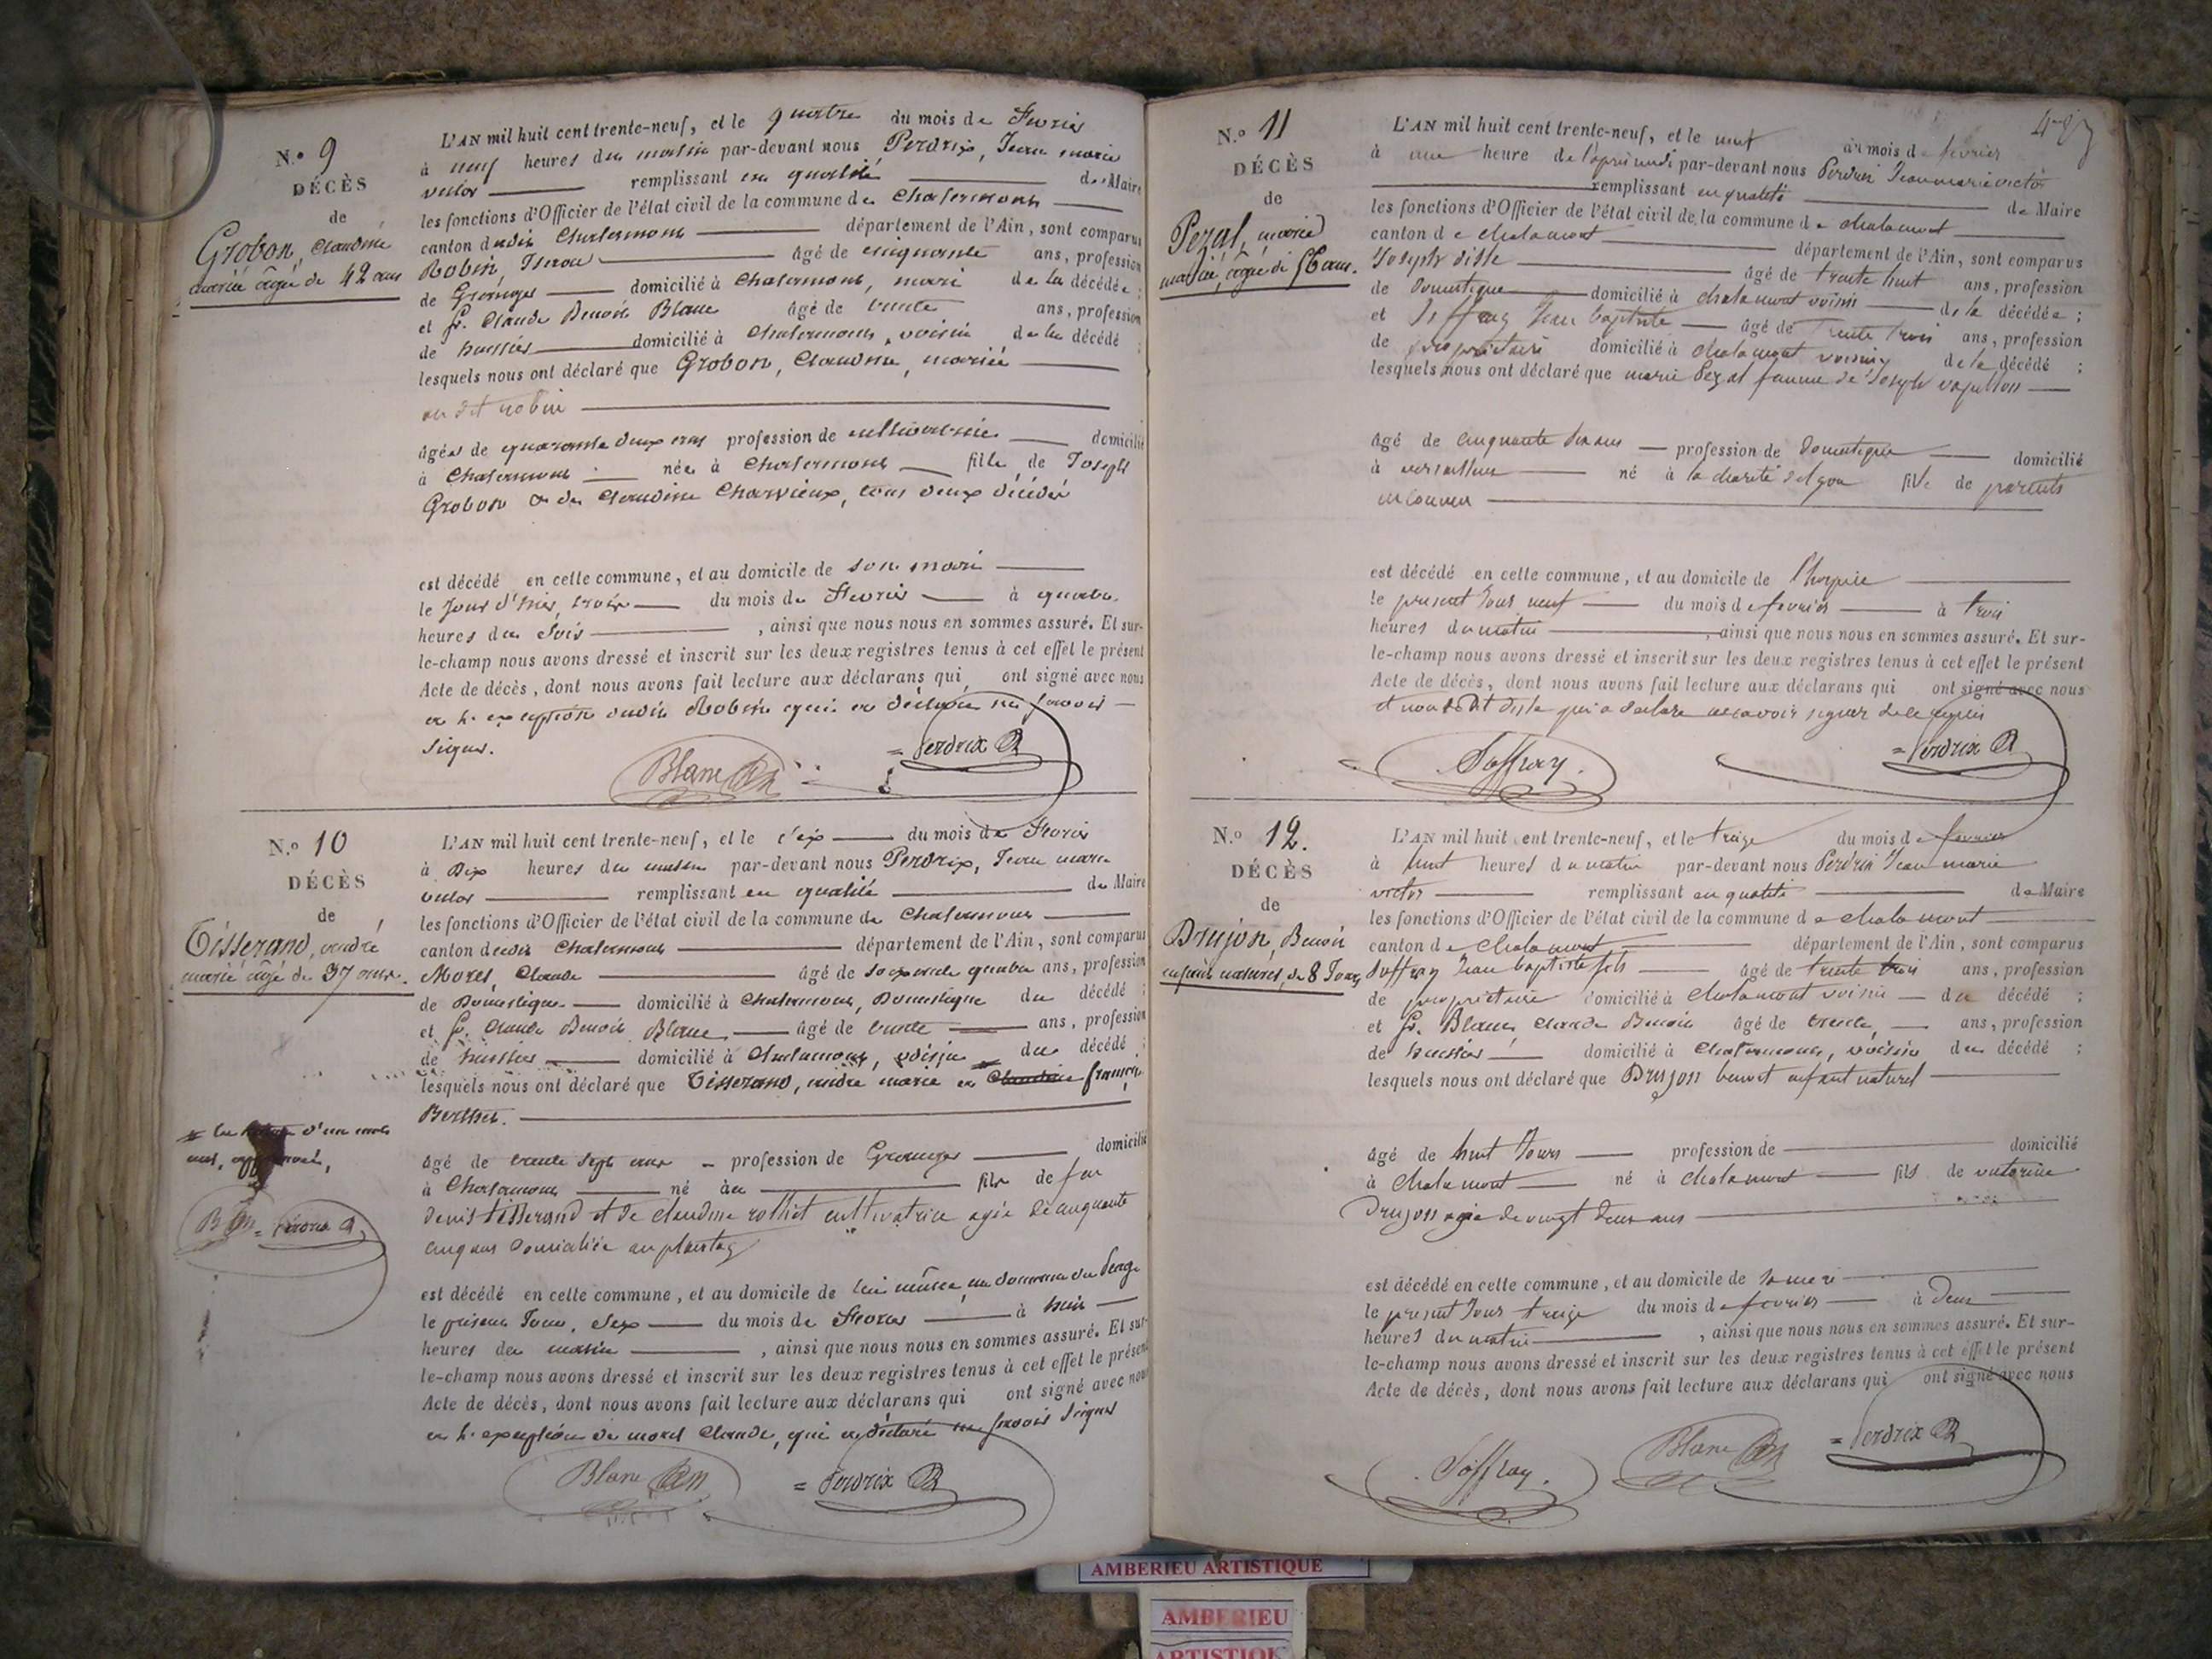 N.° 9
DÉCÈS
de
Grobon, Claudine
mariée âgée de 42 ans
L'AN mil huit cent trente-neuf, et le quatre du mois de Fevrier
à neuf heures du matin par-devant nous Perdrix, Jean marie
victor remplissant en qualité de Maire
les fonctions d'Officier de l'état civil de la commune de Chalamont
canton dudit Chalamont département de l'Ain, sont comparus
Robin, âgé de cinquante ans, profession
de Granger domicilié à Chalamont, mari de la décédée ;
et Sr. Claude Benoit Blanc âgé de trente ans, profession
de huissier domicilié à Chalamont, voisin de la décédé ;
lesquels nous ont déclaré que Grobon, Claudine, mariée
au dit robin
âgée de quarante deux ans profession de cultivatrice domicilié
à Chalamont née à Chalamont fille de Joseph
Grobon & de Claudine Charvieux, tous deux décédés
est décédé en cette commune, et au domicile de son mari
le Jour d'hier, trois du mois de Fevrier à quatre
heures du Soir , ainsi que nous nous en sommes assuré. Et sur-
le-champ nous avons dressé et inscrit sur les deux registres tenus à cet effet le présent
Acte de décès, dont nous avons fait lecture aux déclarans qui ont signé avec nous
a l'exception dudit Robin qui a déclaré ne savoir
signer.
Blanc = Perdrix
N.° 10
DÉCÈS
de
Tisserand, andré
marié âgé de 37 ans.
L'AN mil huit cent trente-neuf, et le six du mois de Fevrier
à Dix heures du matin par-devant nous Perdrix, Jean marie
victor remplissant en qualité de Maire
les fonctions d'Officier de l'état civil de la commune de Chalamont
canton dudit Chalamont département de l'Ain, sont comparus
Morel, Claude âgé de soixante quatre ans, profession
de Domestique domicilié à Chalamont, Domestique du décédé ;
et Sr. Claude Benoit Blanc âgé de trente ans, profession
de huissier domicilié à Chalamont, voisin du décédé ;
lesquels nous ont déclaré que Tisserand, andré marié a Claudine
Berthet.
d'un mot
nul, approuvé,
= Perdrix
âgé de trente sept ans profession de Granger domicilié
à Chalamont né à fils de feu
denis tisserand et de claudine cultivatrice agée de cinquante
cinq ans domiciliée au plantay
est décédé en cette commune, et au domicile de lui même, au domaine du
le présent Jour, six du mois de Fevrier à huit
heures du matin , ainsi que nous nous en sommes assuré. Et sur-
le-champ nous avons dressé et inscrit sur les deux registres tenus à cet effet le présent
Acte de décès, dont nous avons fait lecture aux déclarans qui ont signé avec nous
a l'exception de morel Claude, qui a déclaré ne savoir signer
Blanc = Perdrix
N.° 11
DÉCÈS
de
Pezal, marie
mariée, âgée de 56 ans.
L'AN mil huit cent trente-neuf, et le neuf du mois de fevrier
à une heure de l'après midi par-devant nous Perdrix Jean marie victor
remplissant en qualité de Maire
les fonctions d'Officier de l'état civil de la commune de chalamont
canton de chalamont département de l'Ain, sont comparus
Joseph disse âgé de trente huit ans, profession
de Domestique domicilié à chalamont voisin de la décédée ;
et Joffray Jean baptiste âgé de trente trois ans, profession
de propriétaire domicilié à chalamont voisin de la décédé ;
lesquels nous ont déclaré que marie Pezal femme de Joseph
âgé de cinquante six ans profession de Domestique domicilié
à né à la charité de Lyon fille de parents
inconnus
est décédé en cette commune, et au domicile de l'hospice
le présent Jour neuf du mois de fevrier à trois
heures du matin , ainsi que nous nous en sommes assuré. Et sur-
le-champ nous avons dressé et inscrit sur les deux registres tenus à cet effet le présent
Acte de décès, dont nous avons fait lecture aux déclarans qui ont signé avec nous
et non le dit disse qui a declaré ne savoir signer de ce requis
Joffray. = Perdrix
N.° 12.
DÉCÈS
de
Drujon, Benoit
enfant naturel, de 8 Jours
L'AN mil huit cent trente-neuf, et le treize du mois de fevrier
à huit heures du matin par-devant nous Perdrix Jean marie
victor remplissant en qualité de Maire
les fonctions d'Officier de l'état civil de la commune de chalamont
canton de chalamont département de l'Ain, sont comparus
Joffray Jean baptiste fils âgé de trente trois ans, profession
de propriétaire domicilié à chalamont voisin du décédé ;
et Sr. Blanc, Claude Benoit âgé de trente, ans, profession
de huissier domicilié à Chalamont, voisin du décédé ;
lesquels nous ont déclaré que Drujon benoit enfant naturel
âgé de huit Jours profession de domicilié
à chalamont né à chalamont fils de victorine
Drujon agée de vingt deux ans
est décédé en cette commune, et au domicile de sa mere
le présent Jour treize du mois de fevrier à deux
heures du matin , ainsi que nous nous en sommes assuré. Et sur-
le-champ nous avons dressé et inscrit sur les deux registres tenus à cet effet le présent
Acte de décès, dont nous avons fait lecture aux déclarans qui ont signé avec nous
Joffray. Blanc = Perdrix
AMBERIEU ARTISTIQUE
AMBERIEU
ARTISTIQUE